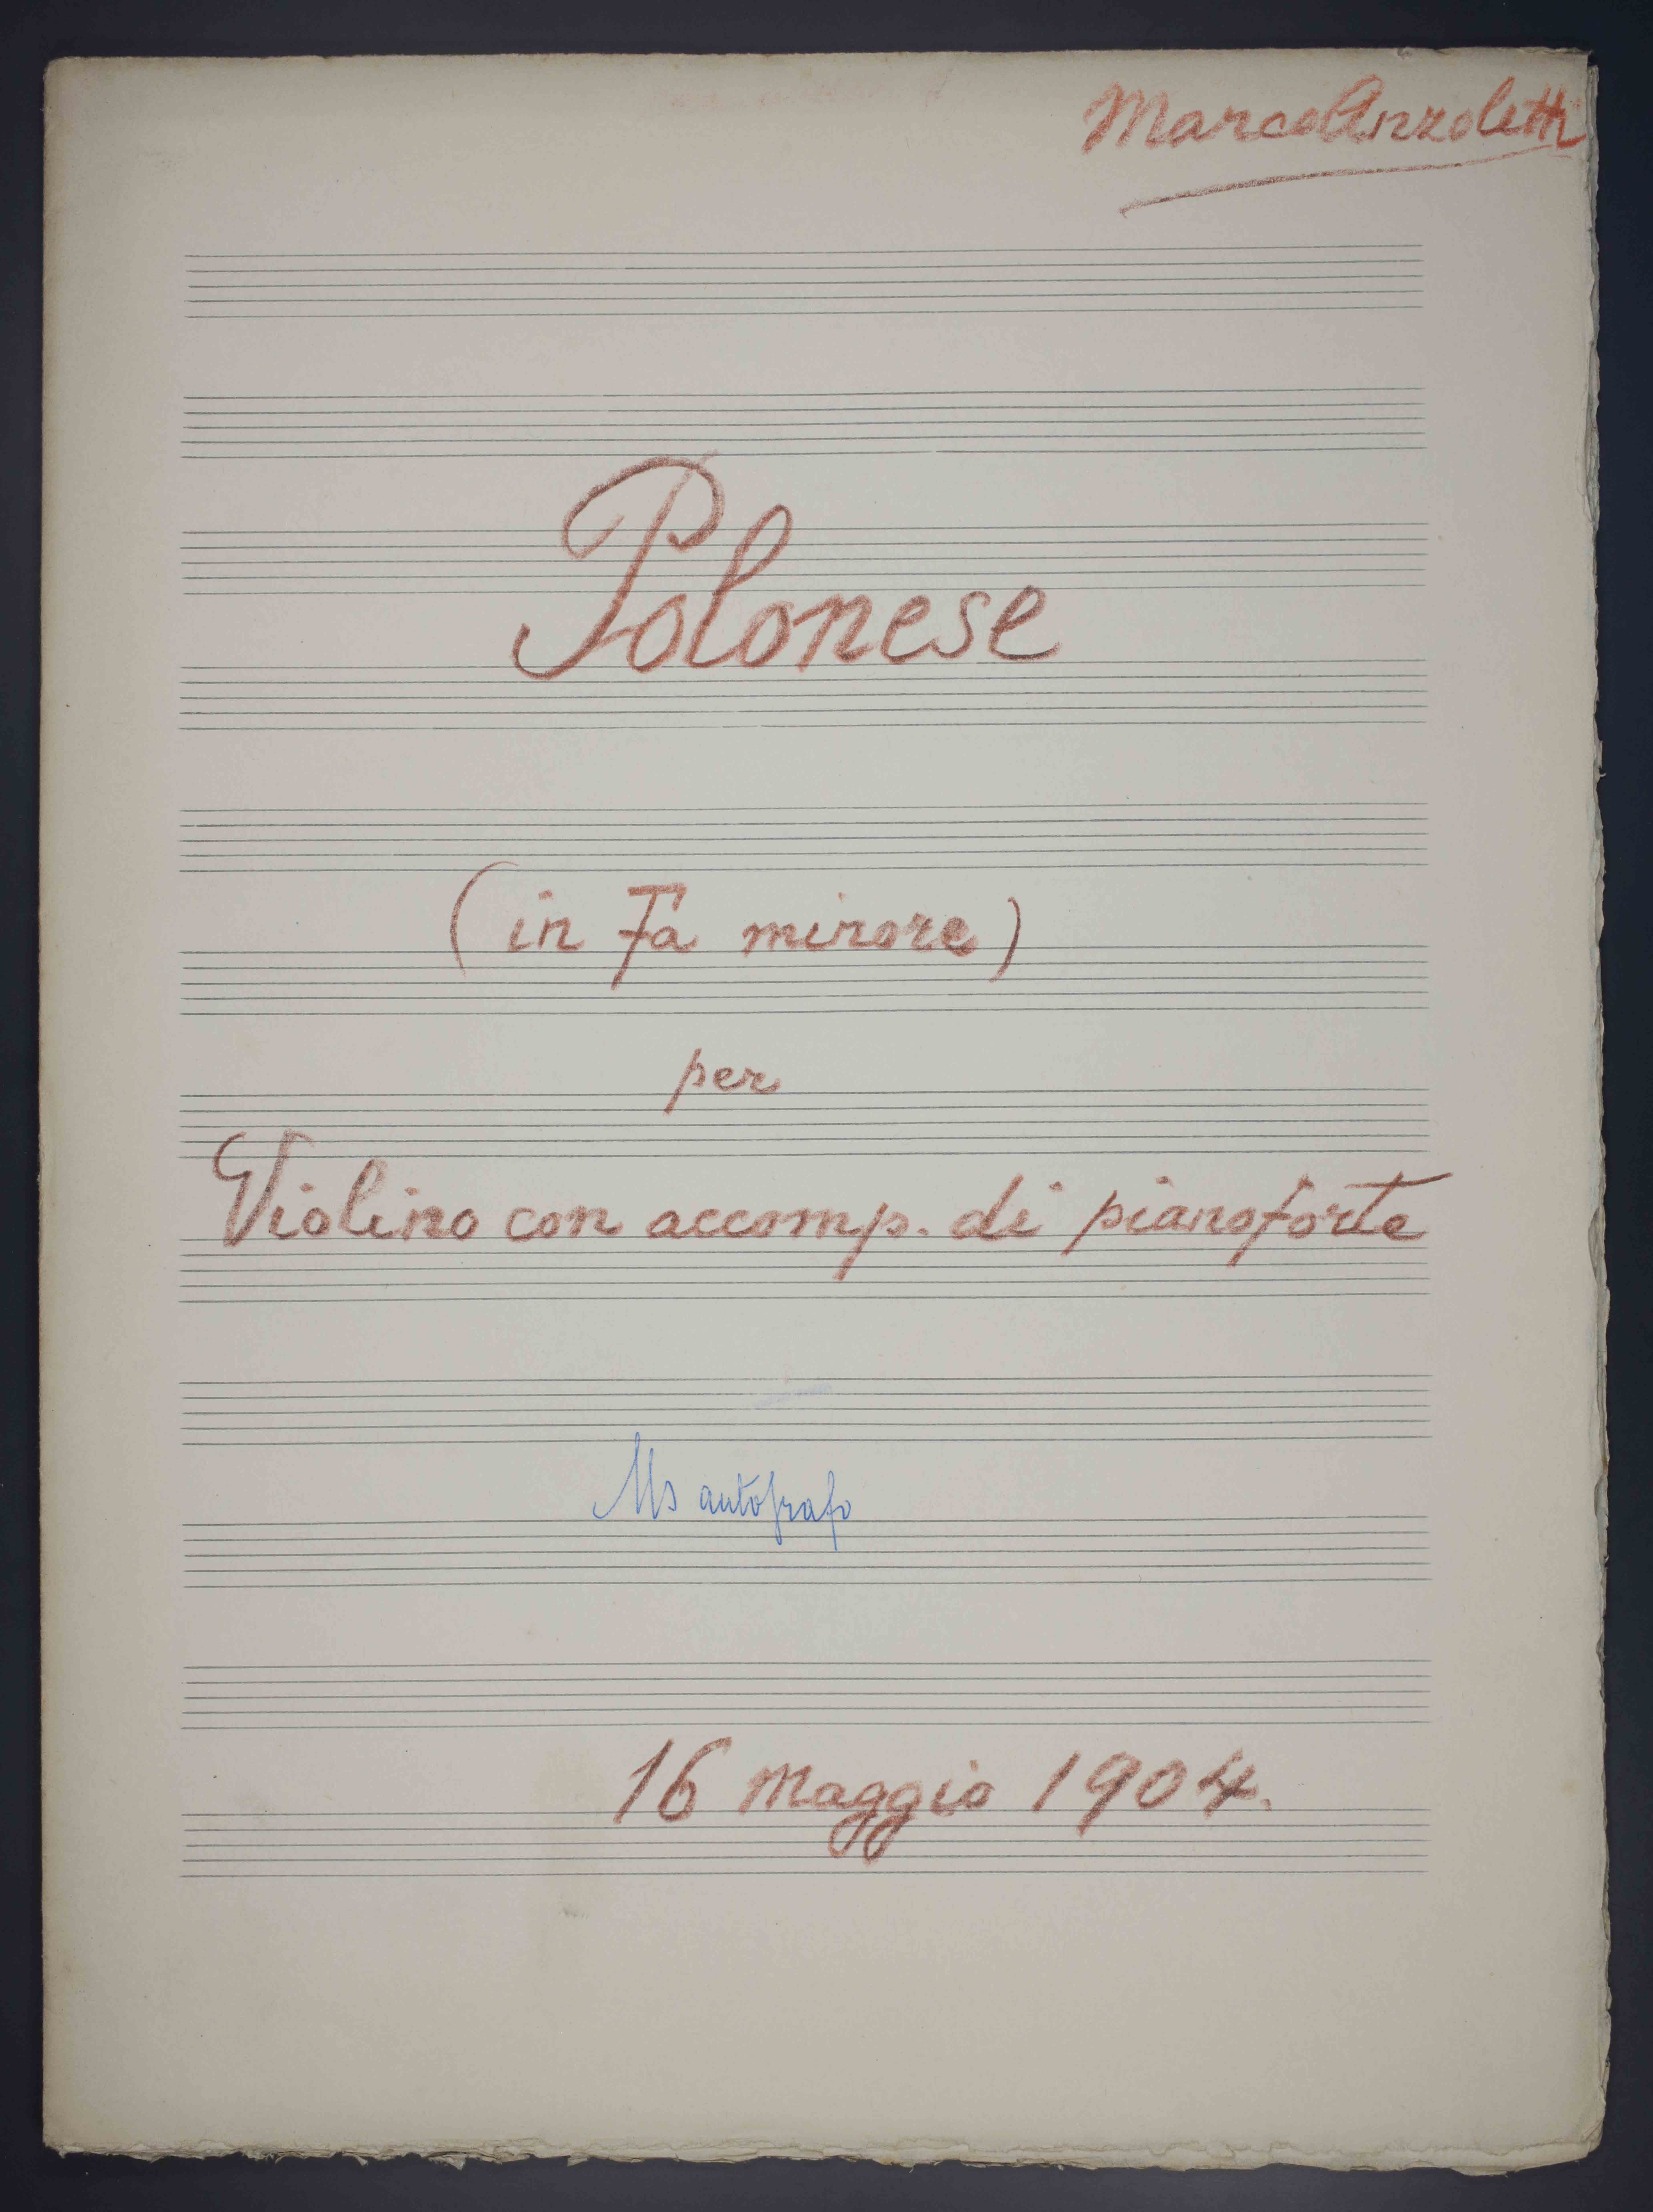 Marco Anzoletti
Polonese
(in Fa minore)
per
Violino con accomp. di pianoforte
Ms autografo
16 Maggio 1904.